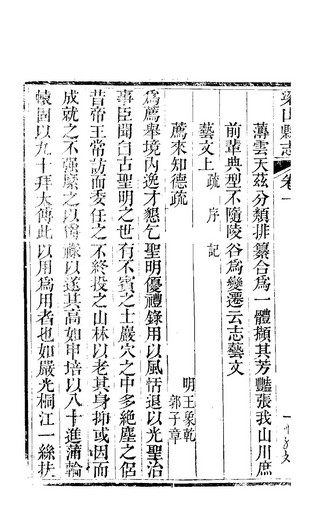 梁山縣志 卷一
薄雲天茲分類排纂合為一體擷其芳豔張我山川庶
前輩典型不隨陵谷為變遷云志藝文
藝文上 疏 序 記
薦來知德疏
明王象乾
郭子章
為薦舉境內逸才懇乞聖明優禮錄用以風恬退以光聖治
事臣聞自古聖明之世有不賓之士巖穴之中多絶塵之侶
昔帝王常訪而委任之不終投之山林以老其身抑或因而
成就之不強縻之以爵祿以遂其高如申培以八十進蒲輪
轅固以九十拜太傅此以用為用者也如嚴光桐江一絲扶